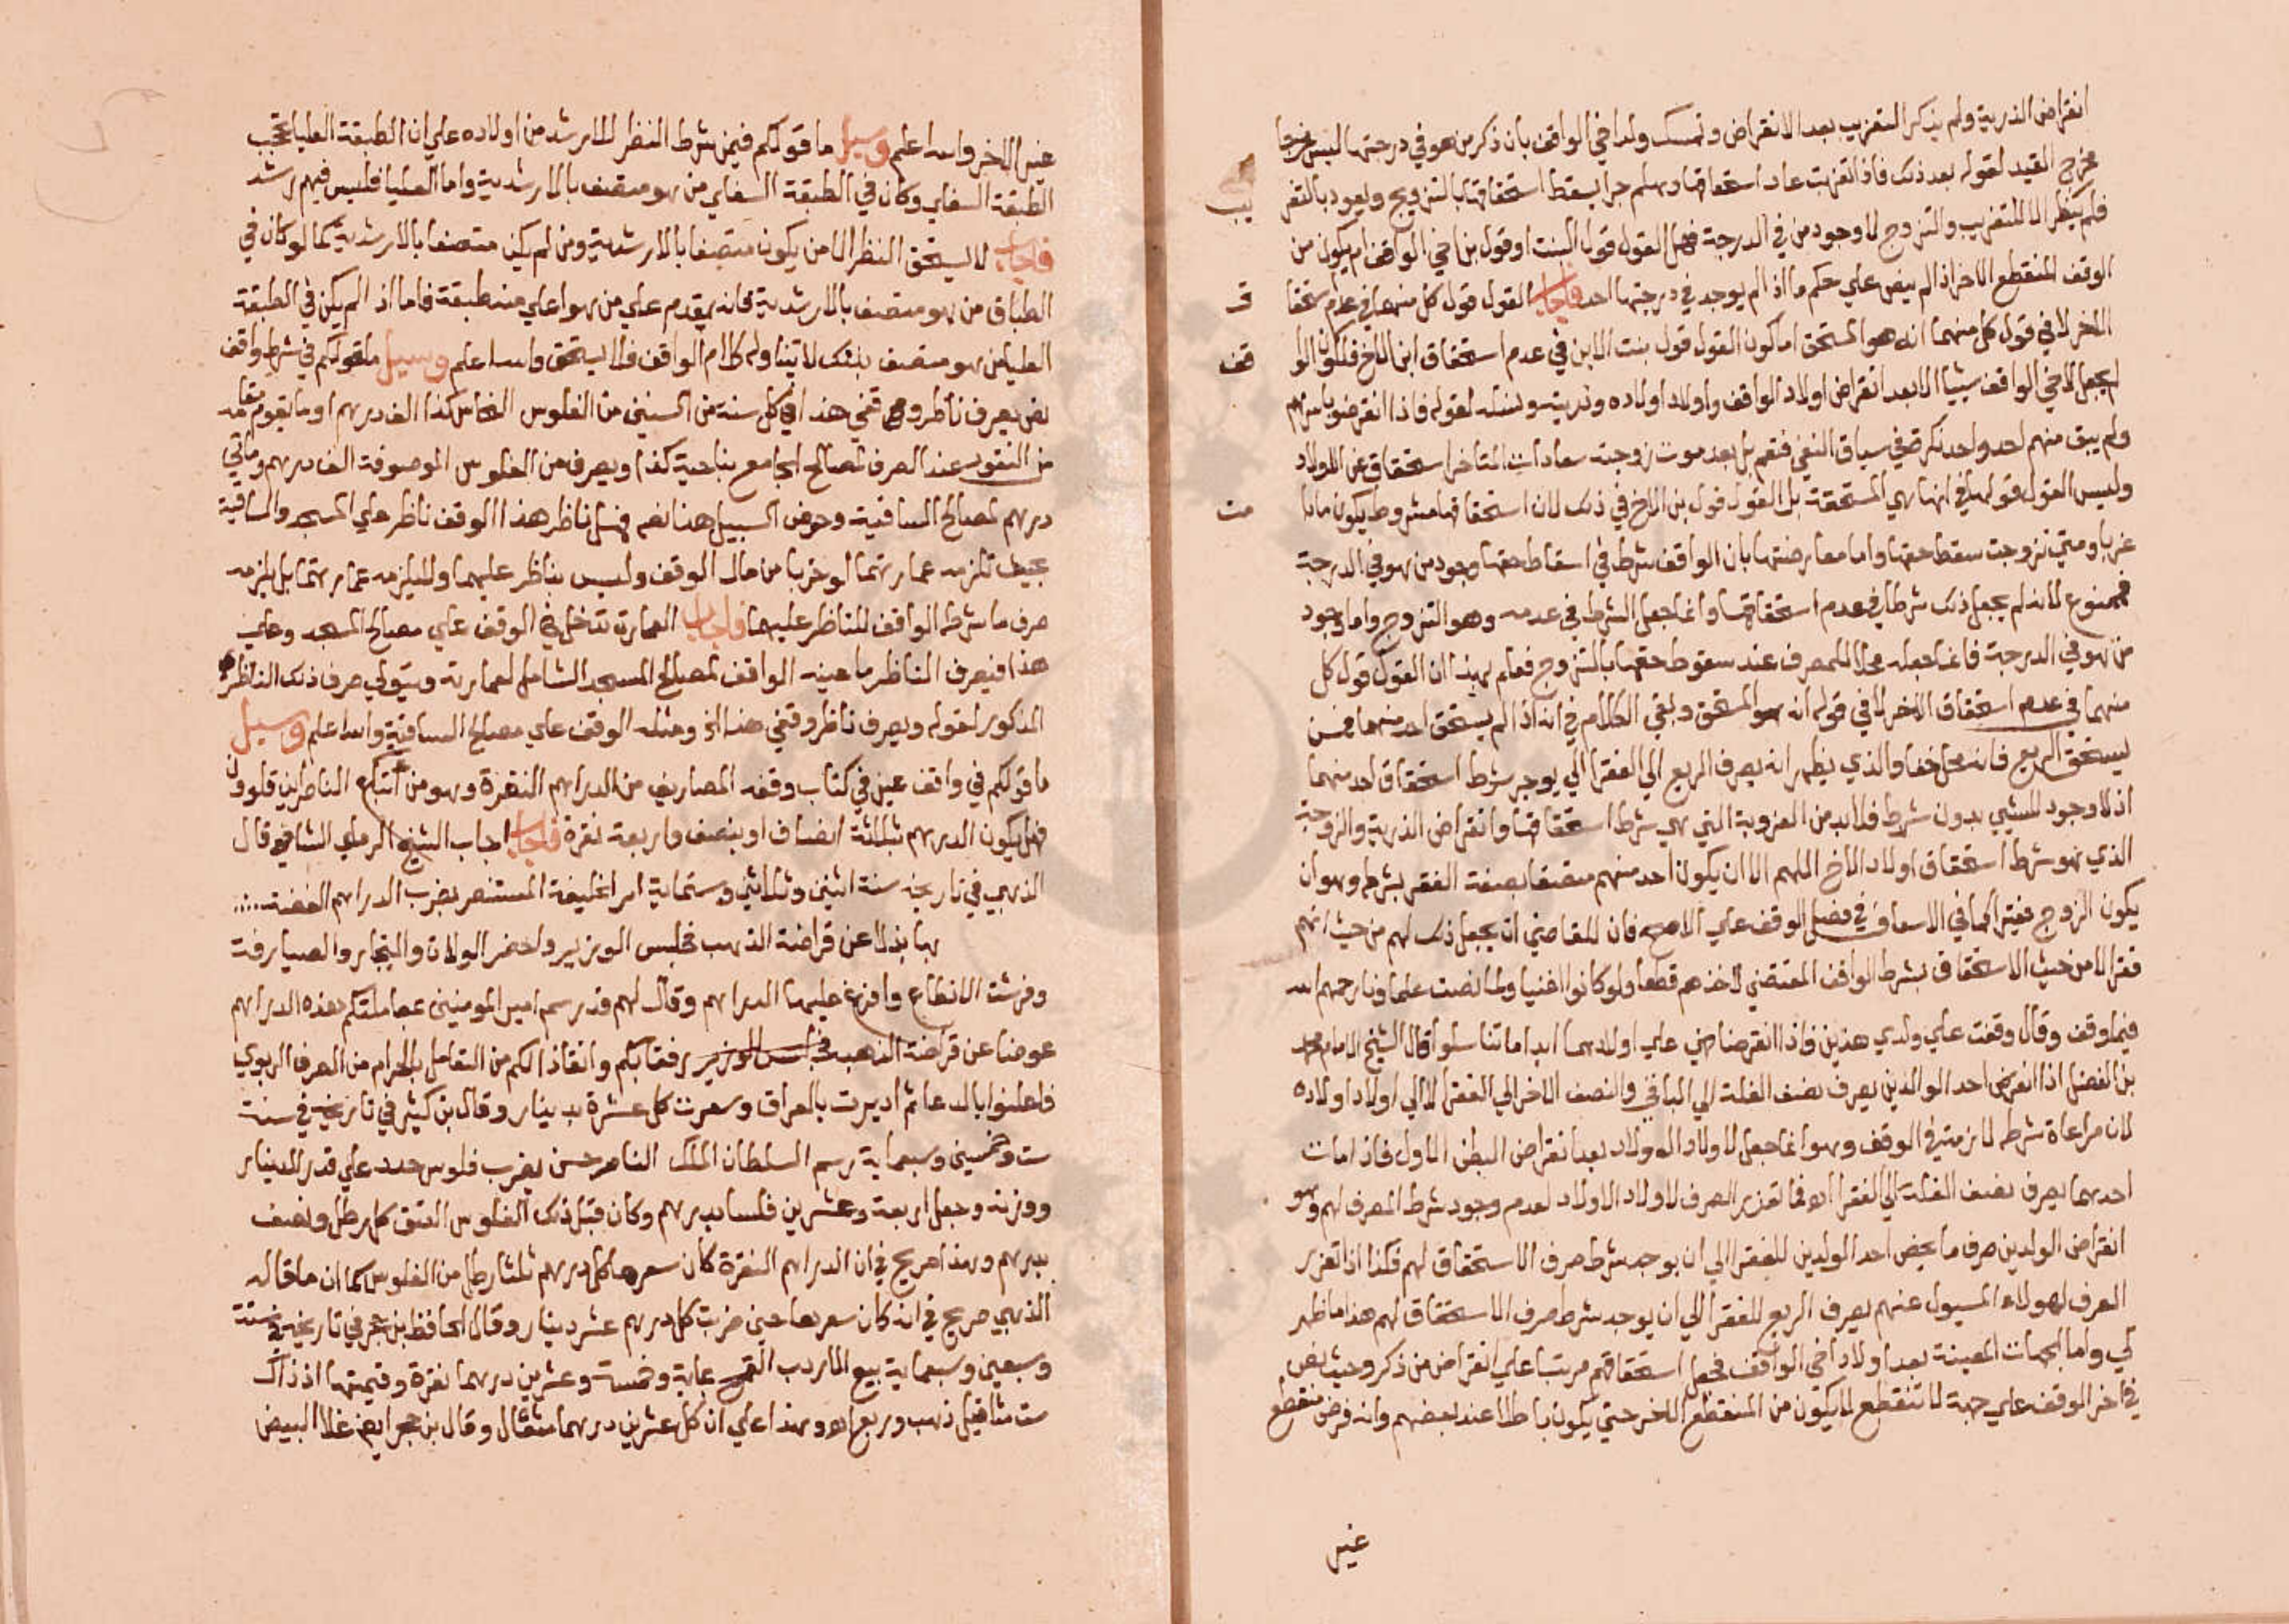 انقراض الذرية ولم يذكر التعزيب بعد الانقراض وتمسك ولد اخي الواقف بان ذكر من هو في درجتها ليس مخرجا
مخرج القيد لقوله بعد ذلك فاذا تعزبت عاد استحقاقها وهلم جرا يسقط استحقاقها بالتزويج ويعود بالتعز
يب
فلم ينظر الا للتعزيب والتزوج لا وجود من في الدرجة فهل القول قول البنت او قول بن اخي الواقف ام يكون من
الوقف المنقطع الاخر اذ لم ينص علي حكم ما اذا لم يوجد في درجتها احد فاجاب القول قول كل منهما في عدم استحقا
ق
الاخر لا في قول كل منهما انه هو المستحق اما كون القول قول بنت الابن في عدم استحقاق ابن الاخ فلكون الوا
قف
لم يجعل لاخي الواقف شيئا الا بعد انقراض اولاد الواقف واولاد اولاده وذريته ونسله لقوله فاذا انقرضوا باسرهم
ولم يبق منهم احد واحد نكرة في سياق النفي فتعم بل بعد موت زوجته سعادات المتاخر استحقاق عن الاولاد
وليس القول قولها في انها هي المستحقة بل القول قول بن الاخ في ذلك لان استحقاقها مشروط بكون ما دا
مت
عزبا ومتي تزوجت سقط حقها واما معارضتها بان الواقف شرط في اسقاط حقها وجود من هو في الدرجة
فممنوع لانه لم يجعل ذلك شرطا في عدم استحقاقها وانما جعل الشرط في عدمه وهو التزوج واما وجود
من هو في الدرجة فانما جعله محلا للصرف عند سقوط حقها بالتزوج فعلم بهذا ان القول قول كل
منهما في عدم استحقاق الاخر لا في قوله انه هو المستحق وبقي الكلام في انه اذا لم يستحق احد منهما فمن
يستحق الريع فانه محل خفا والذي يظهر انه يصرف الريع الي الفقرا الي يوجد شرط استحقاق احد منهما
اذ لا وجود للشي بدون شرط فلابد من العزوبة التي هي شرط استحقاقها وانقراض الذرية والزوجة
الذي هو شرط استحقاق اولاد الاخ اللهم الا ان يكون احد منهم متصفا بصفة الفقر بشرطه وهو ان
يكون الزوج فقيرا كما في الاسعاف في فصل الوقف علي الاصح فان للقاضي ان يجعل ذلك لهم من حيث انهم
فقرا لا من حيث الاستحقاق بشرط الواقف المقتضي لاخذهم قطعا ولو كانوا اغنيا ولما نصت علماونا رحمهم الله
فيما وقف وقال وقفت علي ولدي هذين فاذا انقرضا ضي علي اولادهما ابدا ما تناسلوا قال الشيخ الامام محمد
بن الفضل اذا انقرض احد الوالدين يصرف نصف الغلة الي الباقي والنصف الاخر الي الفقرا لا الي اولاد اولاده
لان مراعاة شرطه لازمة في الوقف وهو انما جعل لاولاد الاولاد بعد انقراض البطن الاول فاذا مات
احدهما يصرف نصف الغلة الي الفقرا اه فما تعذر الصرف لاولاد الاولاد لعدم وجود شرط الصرف لهم وهو
انقراض الولدين صرف ما يخص احد الولدين للفقرا الي ان يوجد شرط صرف الاستحقاق لهم فكذا اذا تعذر
الصرف لهولاء المسيول عنهم يصرف الريع للفقرا الي ان يوجد شرط صرف الاستحقاق لهم هذا ما ظهر
لي واما الجهات المعينة بعد اولاد اخي الواقف فجعل استحقاقهم مرتبا علي انقراض من ذكر وحيث نص
في اخر الوقف علي جهة لا تنقطع لا يكون من المنقطع الاخر حتي يكون باطلا عند بعضهم وانه فرض منقطع
غير
غير الاخر والله اعلم وسيل ما قولكم فيمن شرط النظر للارشد من اولاده علي ان الطبقة العليا تحجب
الطبقة السفلي وكان في الطبقة السفلي من هو متصف بالارشدية واما العليا فليس فيهم ارشد
فاجاب لا يستحق النظر الا من يكون متصفا بالارشدية ومن لم يكن متصفا بالارشدية كما لو كان في
الطباق من هو متصف بالارشدية فانه يقدم علي من هو اعلي منه طبقة فاما اذا لم يكن في الطبقة
العليا من هو متصف بذلك لا يتناوله كلام الواقف فلا يستحق والله اعلم وسيل ما قولكم في شرط واقف
نص يصرف ناظر وقفي هذا في كل سنة من السنين من الفلوس النحاس كذا الف درهم او ما يقوم مقامه
من النقود عند الصرف لمصالح الجامع بناحية كذا ويصرف من الفلوس الموصوفة الف درهم ومائتي
درهم لمصالح الساقية وحوض السبيل هذا نصه فهل ناظر هذا الوقف ناظر علي المسجد والساقية
بحيث تلزمه عمارتهما لو خربا من مال الوقف وليس بناظر عليهما ولا يلزمه عمارتهما بل يلزمه
صرف ما شرطه الواقف للناظر عليهما فاجاب العمارة تدخل في الوقف علي مصالح المسجد وعلي
هذا فيصرف الناظر ما عينه الواقف لمصالح المسجد الشامل لعمارته ويتولي صرف ذلك الناظر
المذكور لقوله ويصرف ناظر وقفي هذا الخ ومثله الوقف علي مصالح الساقية والله اعلم وسيل
ما قولكم في واقف عين في كتاب وقفه المصاريف من الدراهم النقرة وهو من اتباع الناصر بن قلاوون
فهل يكون الدرهم بثلاثة انصاف او بنصف واربعة نقرة فاجاب اجاب الشيخ الرملي الشافعي قال
الذهبي في تاريخه سنة اثنين وثلاثين وستماية امر الخليفة المستنصر بضرب الدراهم الفضة
بها بدلا عن قراضة الذهب فجلس الوزير واحضر الولاة والتجار والصيارفة
وفرشت الانطاع وافرغ عليها الدراهم وقال لهم قد رسم امير المومنين بمعاملتكم بهذه الدراهم
عوضا عن قراضة الذهب رفقا بكم وانقاذا لكم من التعامل بالحرام من الصرف الربوي
فاعلنوا بالدعا ثم اديرت بالعراق وسعرت كل عشرة بدينار وقال بن كثير في تاريخه في سنة
ست وخمسين وسبعماية رسم السلطان الملك الناصر حسن بضرب فلوس جدد علي قدر الدينار
ووزنه وجعل اربعة وعشرين فلسا بدرهم وكان قبل ذلك الفلوس العتق كل رطل ونصف
بدرهم وهذا صريح في ان الدراهم النقرة كان سعرها كل درهم ثلثا رطل من الفلوس كما ان ما قاله
الذهبي صريح في انه كان سعرها حين ضربت كل درهم عشر دينار وقال الحافظ بن حجر في تاريخه في سنة
وسبعين وسبعماية بيع الاردب القمح بماية وخمسة وعشرين درهما نقرة وقيمتها اذ ذاك
ست مثاقيل ذهب وربع اه وهذا علي ان كل عشرين درهما مثقال وقال بن حجر ايضا غلا البيض